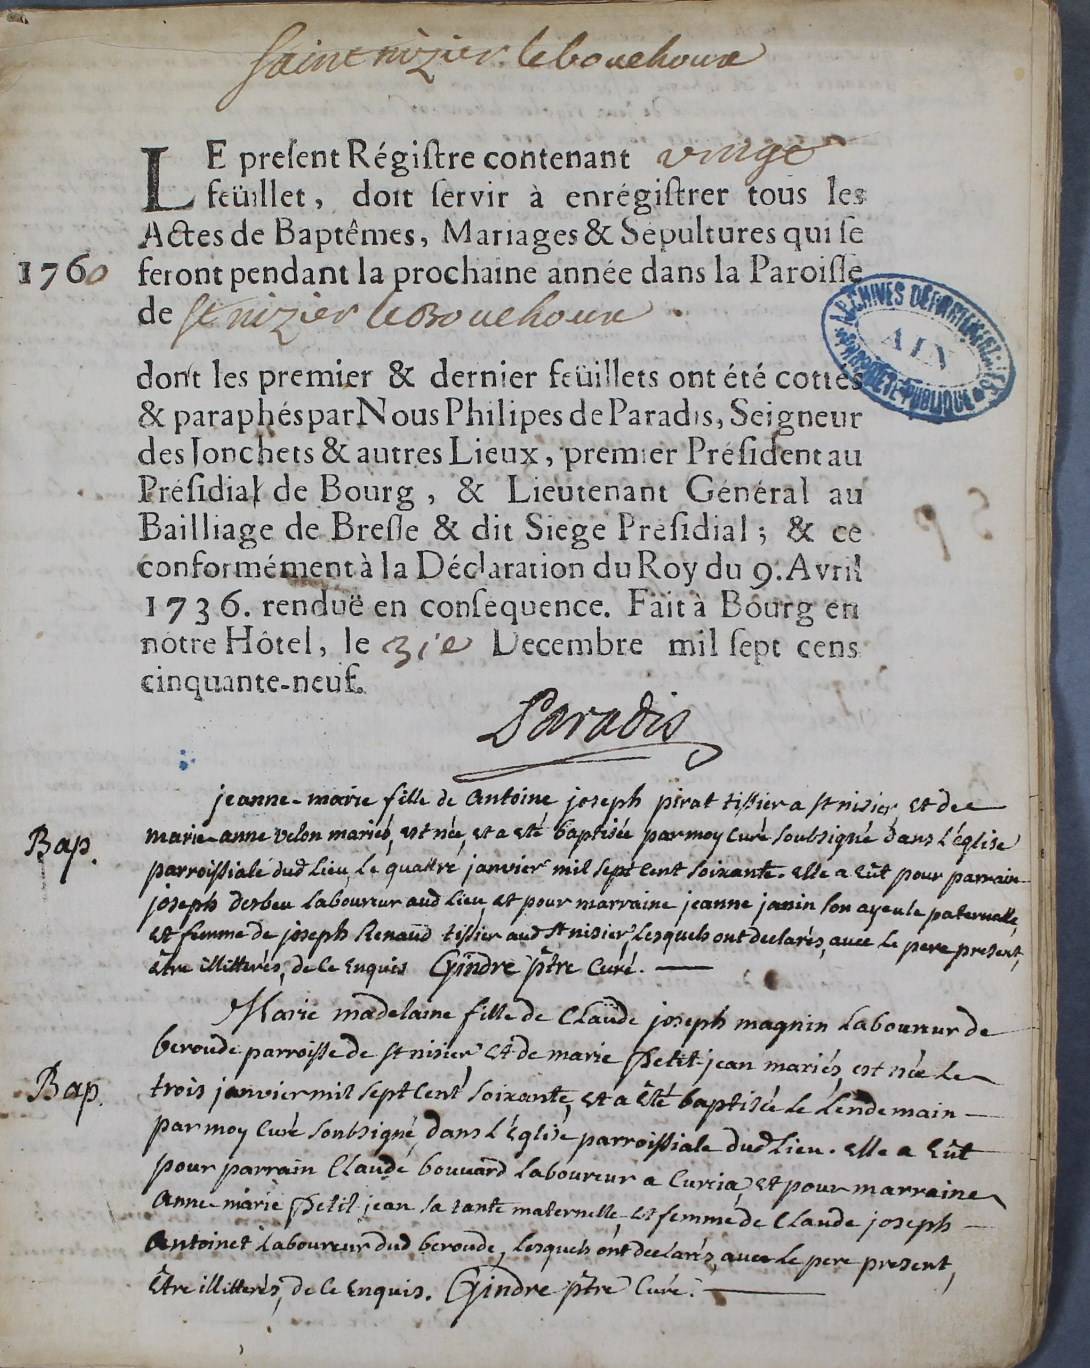 saint nizier le bouchoux
LE preſent Régiſtre contenant vingt
feüillet, doit ſervir à enrégiſtrer tous les
Actes de Baptêmes, Mariages & Sepultures qui ſe
1760 feront pendant la prochaine année dans la Paroiſſe
de St nizier le Bouchoux
ARCHIVES DÉPARTEMENTALES
AIN
PROPRIÉTÉ PUBLIQUE
dont les premier & dernier feüillets ont été cottés
& paraphés par Nous Philipes de Paradis, Seigneur
des Jonchets & autres Lieux, premier Préſident au
Préſidial de Bourg, & Lieutenant Général au
Bailliage de Breſſe & dit Siege Preſidial; & ce
conformément à la Déclaration du Roy du 9. Avril
1736. renduë en conſequence. Fait à Bourg en
nôtre Hôtel, le 31e Decembre mil ſept cens
cinquante-neuf.
Paradis
jeanne-marie fille de Antoine joseph pirat tissier a st nisier, et de
Bap. marie-anne velon mariés, est née, et a eté baptisée par moy curé soubsigné dans l'église
parroissiale dud lieu, le quattre janvier mil sept cent soixante. elle a eût pour parrain
joseph derbeu laboureur aud lieu, et pour marraine jeanne janin son ayeule paternelle,
et femme de joseph Renaud tissier aud st nisier, lesquels ont declarés, avec le pere present,
être illitterés, de ce enquis Gindre ptre curé.
Marie madelaine fille de Claude joseph magnin laboureur de
beroude parroisse de st nisier et de marie Petit-jean mariés, est née le
Bap. trois janvier mil sept cent soixante, et a été baptisée le lendemain
par moy curé soubsigné, dans l'église parroissiale dud lieu. elle a eût
pour parrain Claude bouvard laboureur a curcia, et pour marraine
Anne-marie Petit jean sa tante maternelle, et femme de Claude joseph
Antoinet laboureur dud beroude, lesquels ont declarés, avec le pere present,
être illitterés, de ce enquis. Gindre ptre curé.